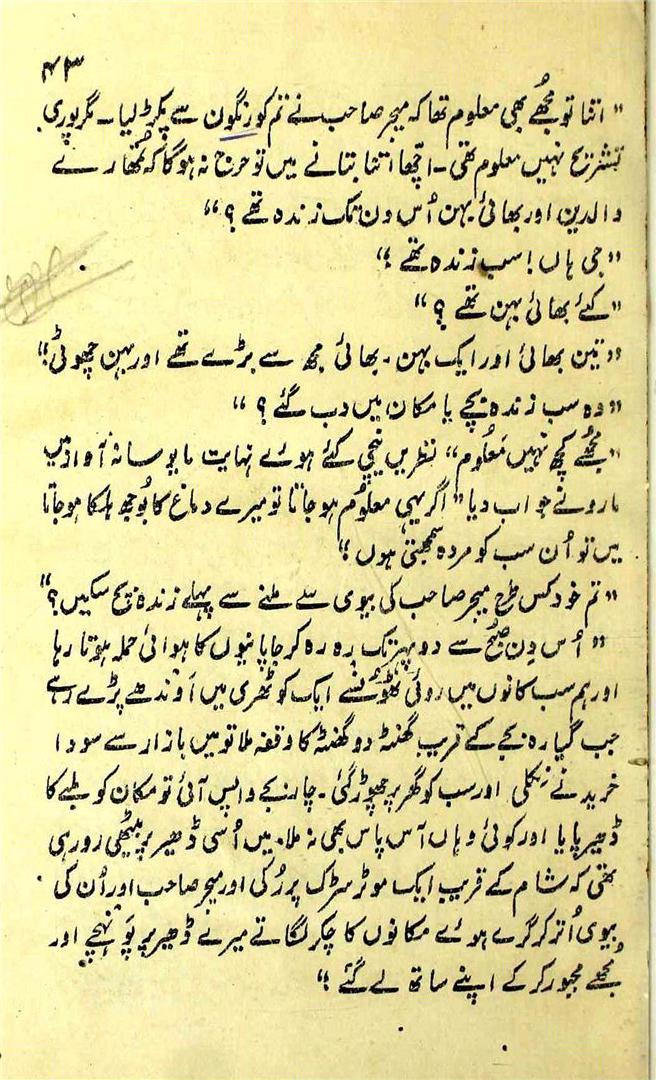 ۴۳
"اتنا تو مجھے بھی معلوم تھا کہ میجر صاحب نے تم کو رنگون سے پکڑ لیا۔ مگر پوری
تشریح نہیں معلوم تھی۔ اچھا اتنا بتانے میں تو حرج نہ ہوگا کہ تمھارے
والدین اور بھائی بہن اُس دن تک زندہ تھے؟"
"جی ہاں! سب زندہ تھے!"
"کئے بھائی بہن تھے؟"
"تین بھائی اور ایک بہن۔ بھائی مجھ سے بڑے تھے اور بہن چھوٹی!"
"وہ سب زندہ بچے یا مکان میں دب گئے؟"
"مجھے کچھ نہیں مَعلُوم" نظریں نیچی کئے ہوئے نہایت مایوسانہ آواز میں
مارو نے جواب دیا "اگر یہی معلُوم ہو جاتا تو میرے دماغ کا بُوجھ ہلکا ہو جاتا
میں تو اُن سب کو مردہ سمجھتی ہوں!"
"تم خود کس طرح میجر صاحب کی بیوی سے ملنے سے پہلے زندہ بچ سکیں؟"
"اُس دِن صُبح سے دوپہر تک رہ رہ کر جاپانیوں کا ہوائی حملہ ہوتا رہا
اور ہم سب کانوں میں روئی ٹھونسے ایک کوٹھری میں اَوندھے پڑے رہے
جب گیارہ بجے کے قریب گھنٹہ دو گھنٹہ کا وقفہ ملا تو میں بازار سے سودا
خریدنے نکلی اور سب کو گھر پر چھوڑ گئی۔ چار بجے واپس آئی تو مکان کو ملبے کا
ڈھیر پایا اور کوئی وہاں آس پاس بھی نہ ملا۔ میں اُسی ڈھیر پر بیٹھی رو رہی
تھی کہ شام کے قریب ایک موٹر سڑک پر رُکی اور میجر صاحب اور اُن کی
بیوی اُتر کر گرے ہوئے مکانوں کا چکر لگاتے میرے ڈھیر پر پَہونچے اور
مُجھے مجبور کر کے اپنے ساتھ لے گئے!"